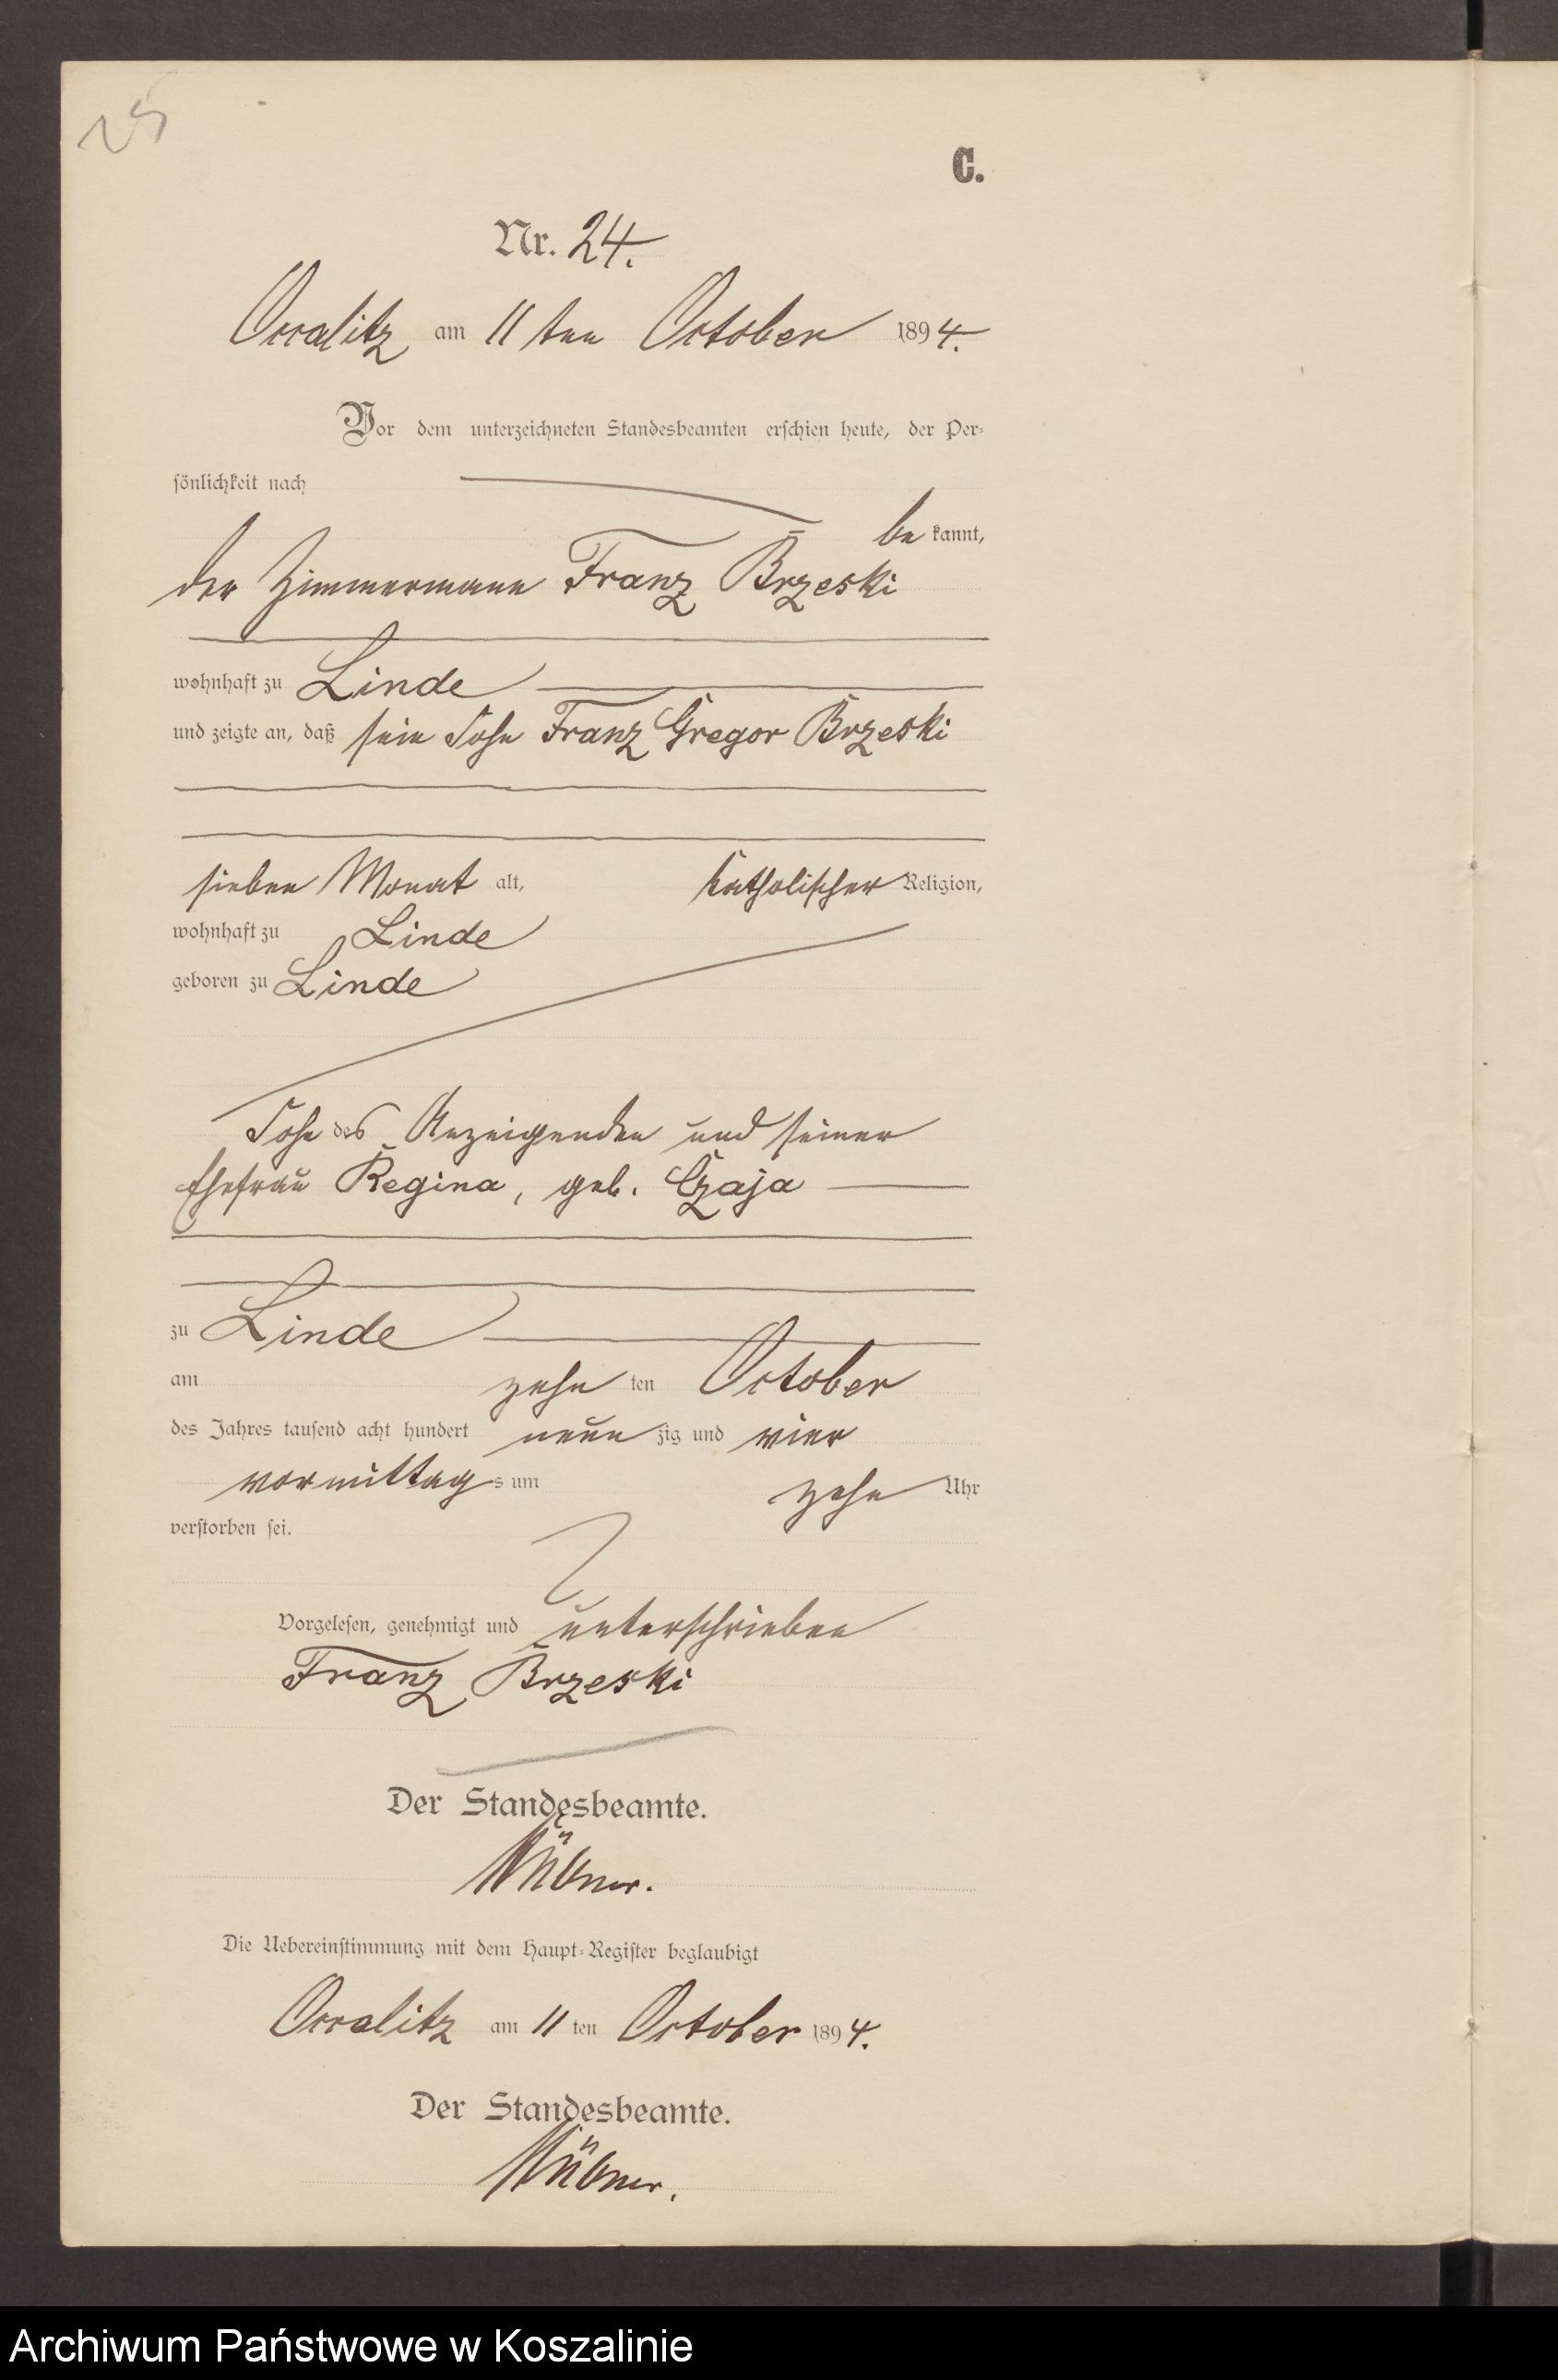 25
C.
Nr. 24.
Occalitz am 11 ten October 1894.
Vor dem unterzeichneten Standesbeamten erschien heute, der Per-
sönlichkeit nach
be kannt,
der Zimmermann Franz Brzeski
wohnhaft zu Linde
und zeigte an, daß sein Sohn Franz Gregor Brzeski
sieben Monat alt, katholischer Religion,
wohnhaft zu Linde
geboren zu Linde
Sohn des Anzeigenden und seiner
Ehefrau Regina, geb. Czaja
zu Linde
am zehn ten October
des Jahres tausend acht hundert neun zig und vier
vormittag s um zehn Uhr
verstorben sei.
Vorgelesen, genehmigt und unterschrieben
Franz Brzeski
Der Standesbeamte.
Die Uebereinstimmung mit dem Haupt-Register beglaubigt
Occalitz am 11 ten October 1894.
Der Standesbeamte.
Archiwum Państwowe w Koszalinie